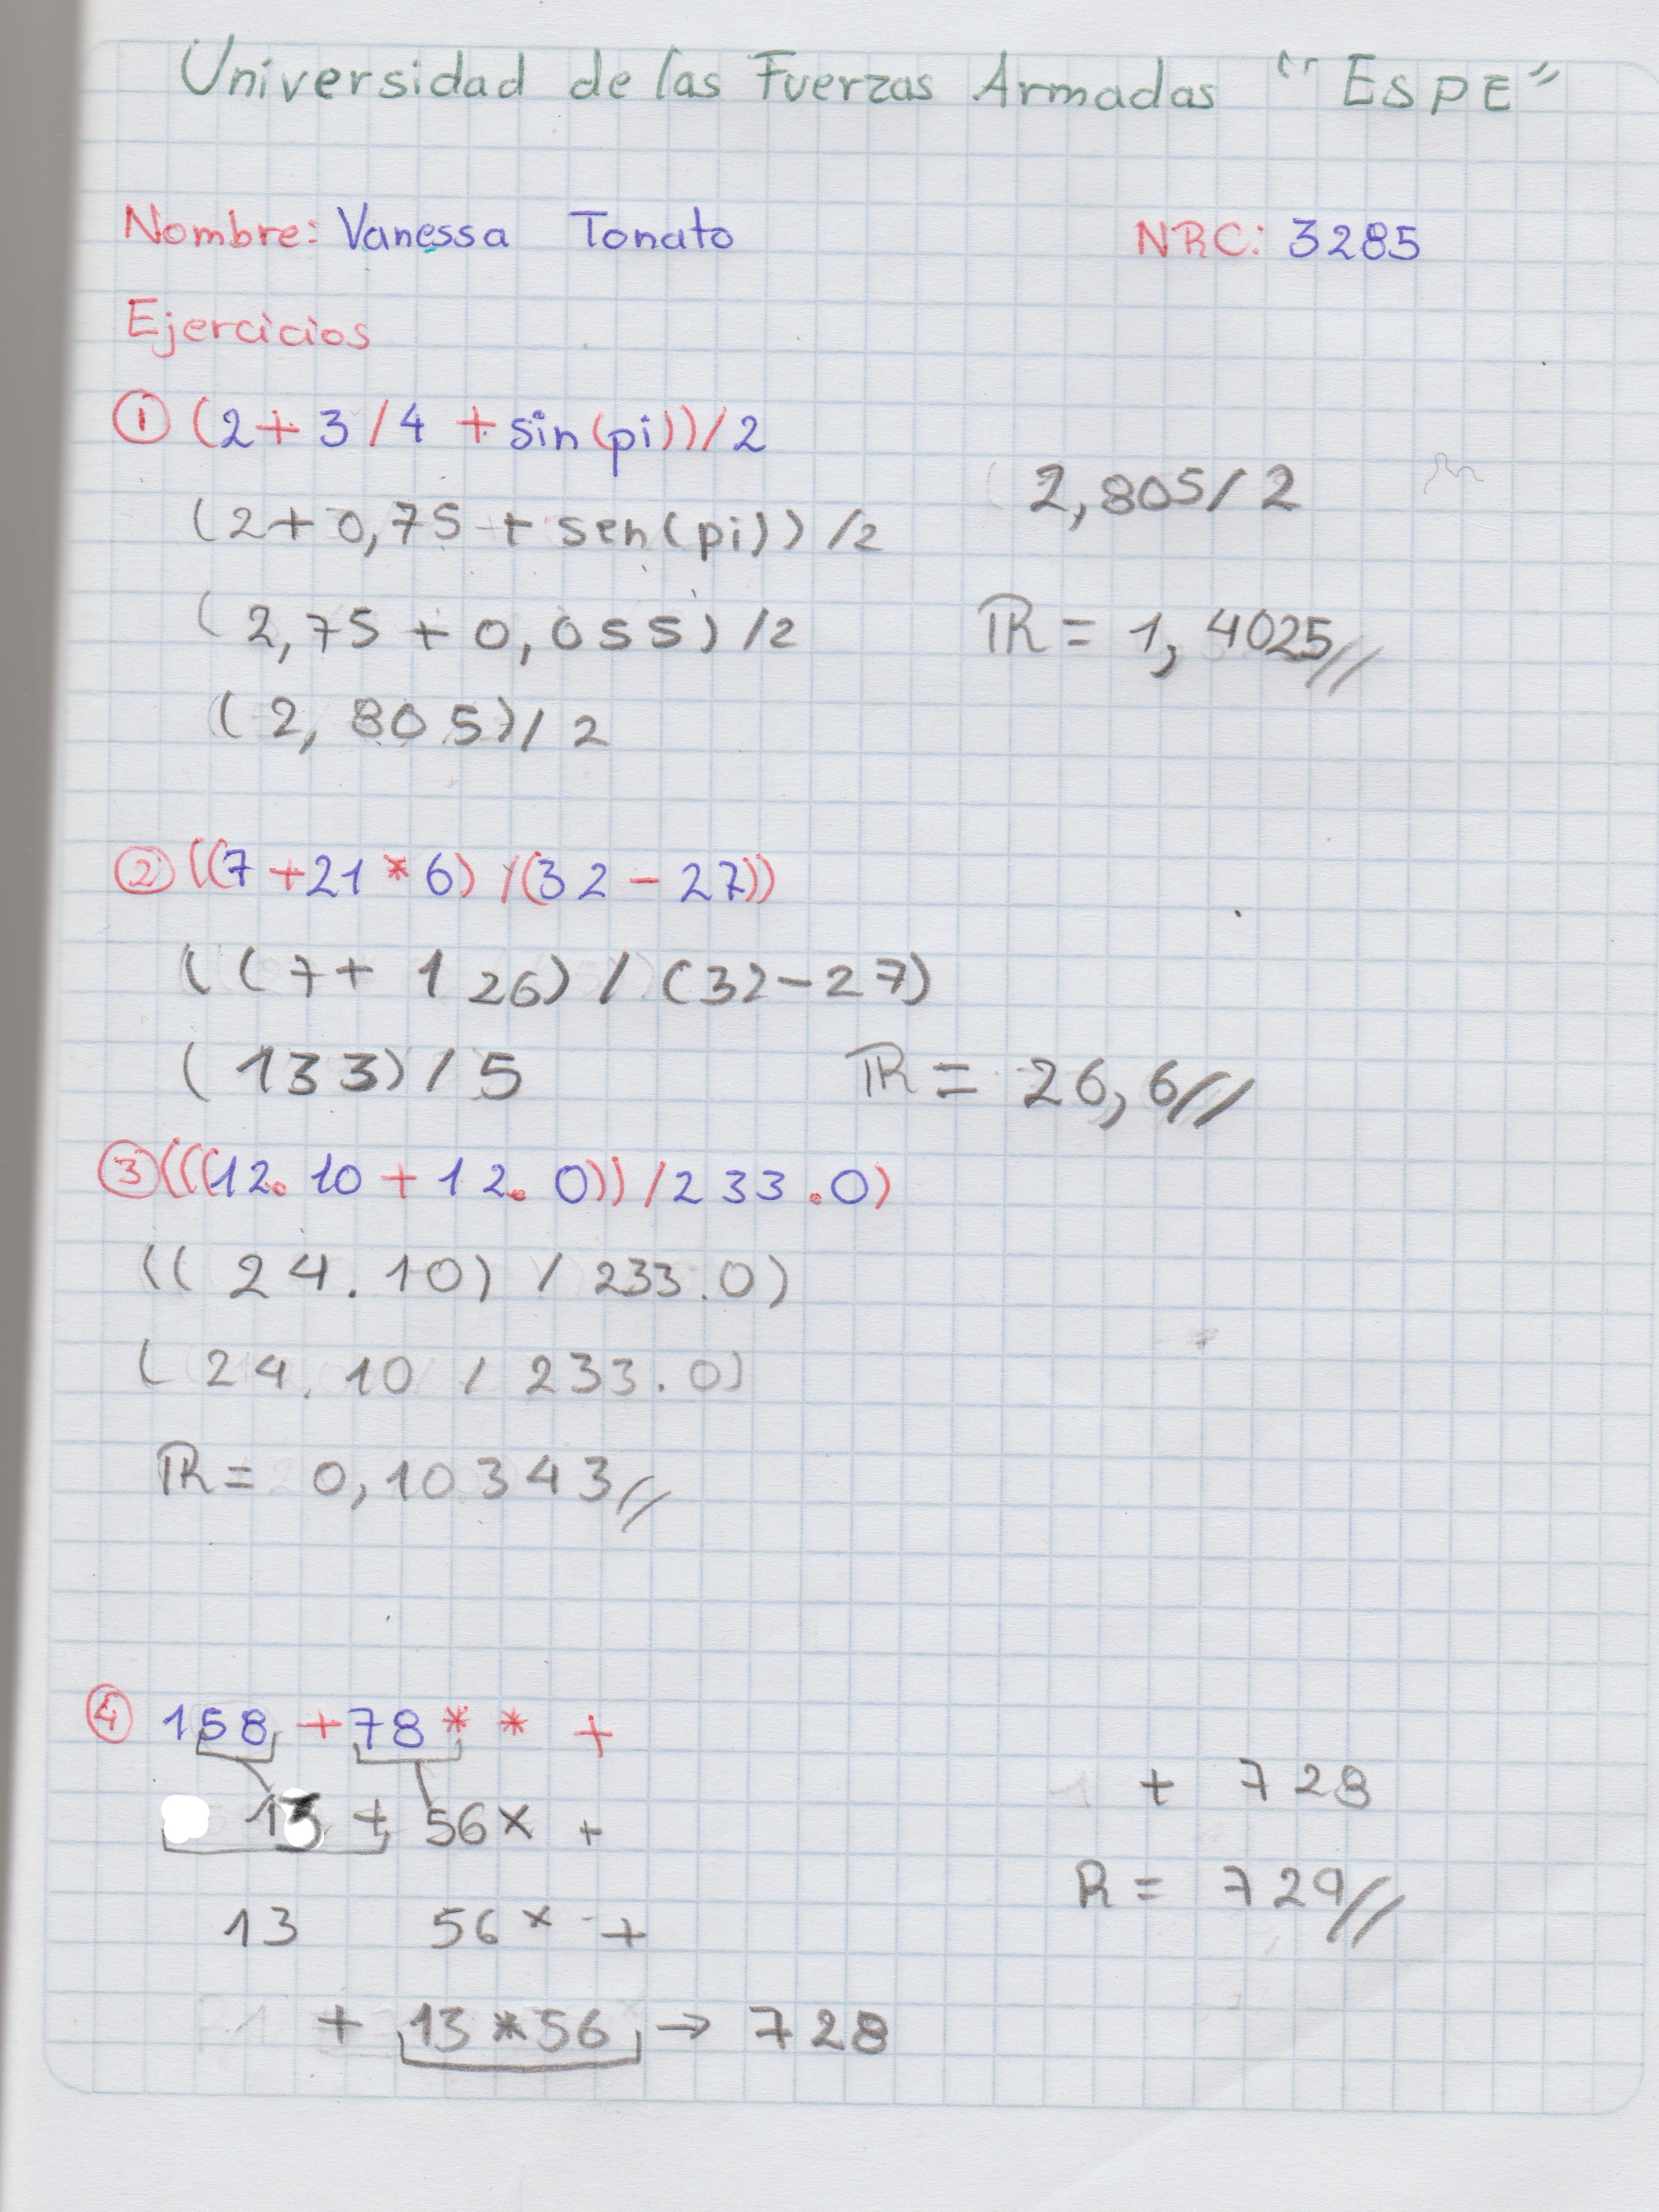 Universidad de las Fuerzas Armadas "ESPE"
Nombre: Vanessa Tonato NRC: 3285
Ejercicios
① (2+3/4+sin(pi))/2
(2+0,75+sen(pi))/2
(2,75+0,055)/2
(2,805)/2
2,805/2
R = 1,4025//
② ((7+21*6)/(32-27))
((7+126)/(32-27)
(133)/5 R = 26,6//
③ (((12.10+12.0))/233.0)
((24.10)/233.0)
(24.10/233.0)
R = 0,10343//
④ 158+78**+
13 + 56x +
13 56x +
+ 13*56 → 728
+ 728
R = 729//